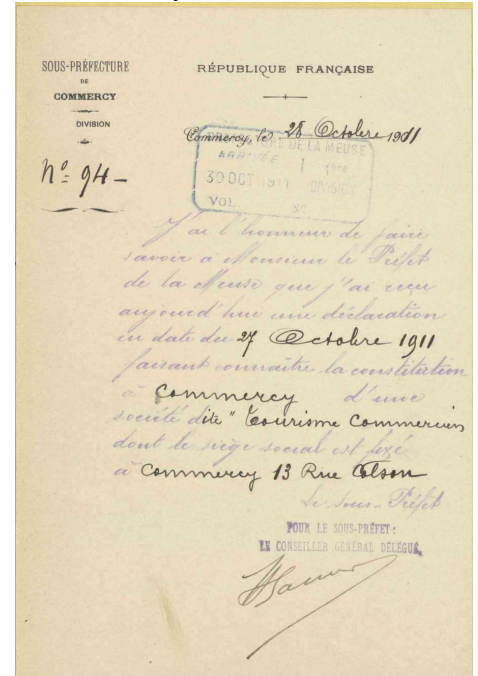 SOUS-PRÉFECTURE
DE
COMMERCY
DIVISION
Nº 94 -
RÉPUBLIQUE FRANÇAISE
Commercy, le 28 Octobre 1911
PRÉFECTURE DE LA MEUSE
ARRIVÉE 1ère
30 OCT 1911 DIVISION
VOL.
J'ai l'honneur de faire
savoir à Monsieur le Préfet
de la Meuse que j'ai reçu
aujourd'hui une déclaration
en date du 27 Octobre 1911
faisant connaître la constitution
à Commercy d'une
société dite "Tourisme Commercien
dont le siège social est fixé
à Commercy 13 Rue Colson
Le Sous-Préfet
POUR LE SOUS-PRÉFET :
LE CONSEILLER GÉNÉRAL DÉLÉGUÉ,